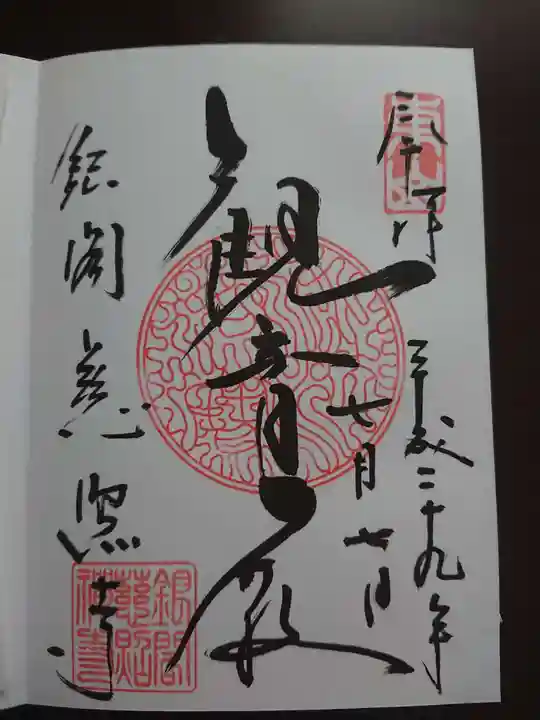 奉拝
平成二十九年
七月七日
観音殿
銀閣慈照寺
東山
銀閣
慈照
禅寺